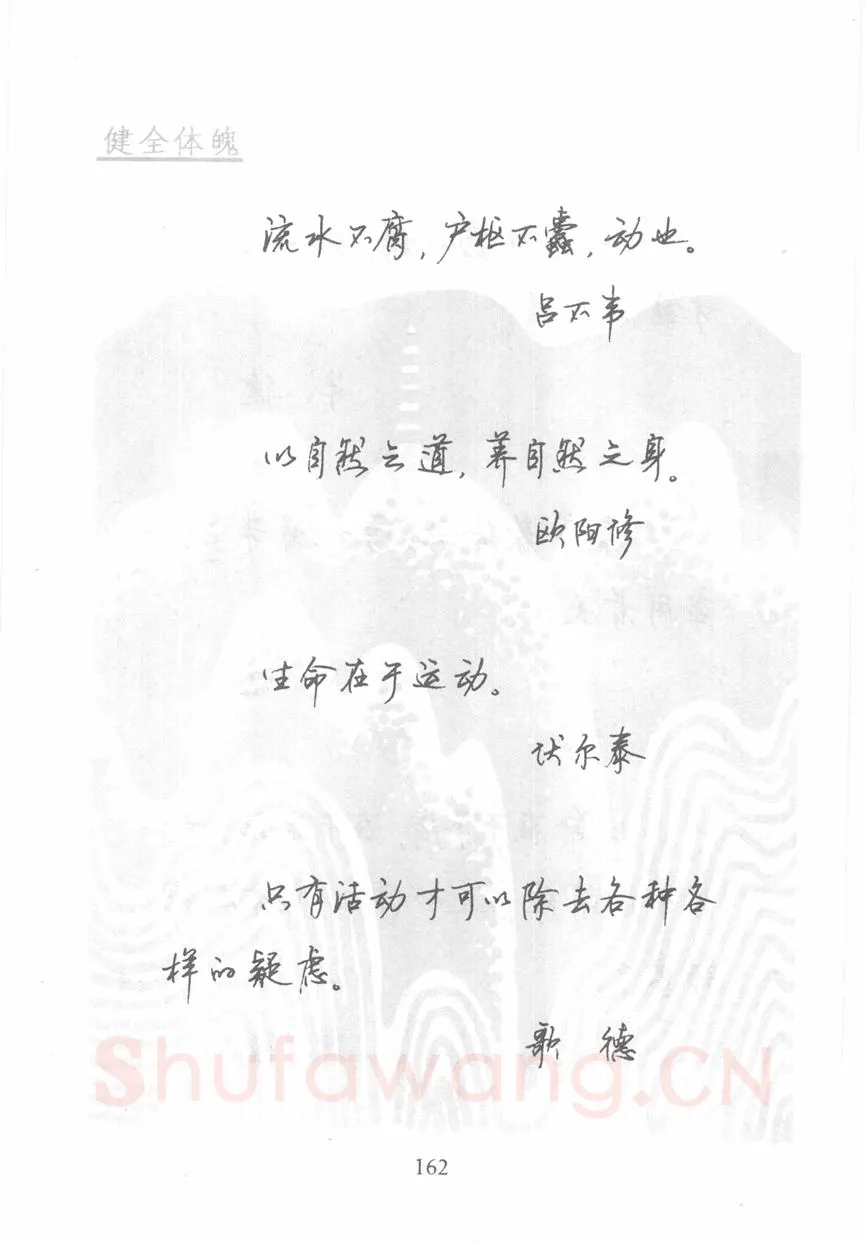 健全体魄
流水不腐，户枢不蠹，动也。
吕不韦
以自然之道，养自然之身。
欧阳修
生命在于运动。
伏尔泰
只有活动才可以除去各种各
样的疑虑。
歌 德
Shufawang.CN
162